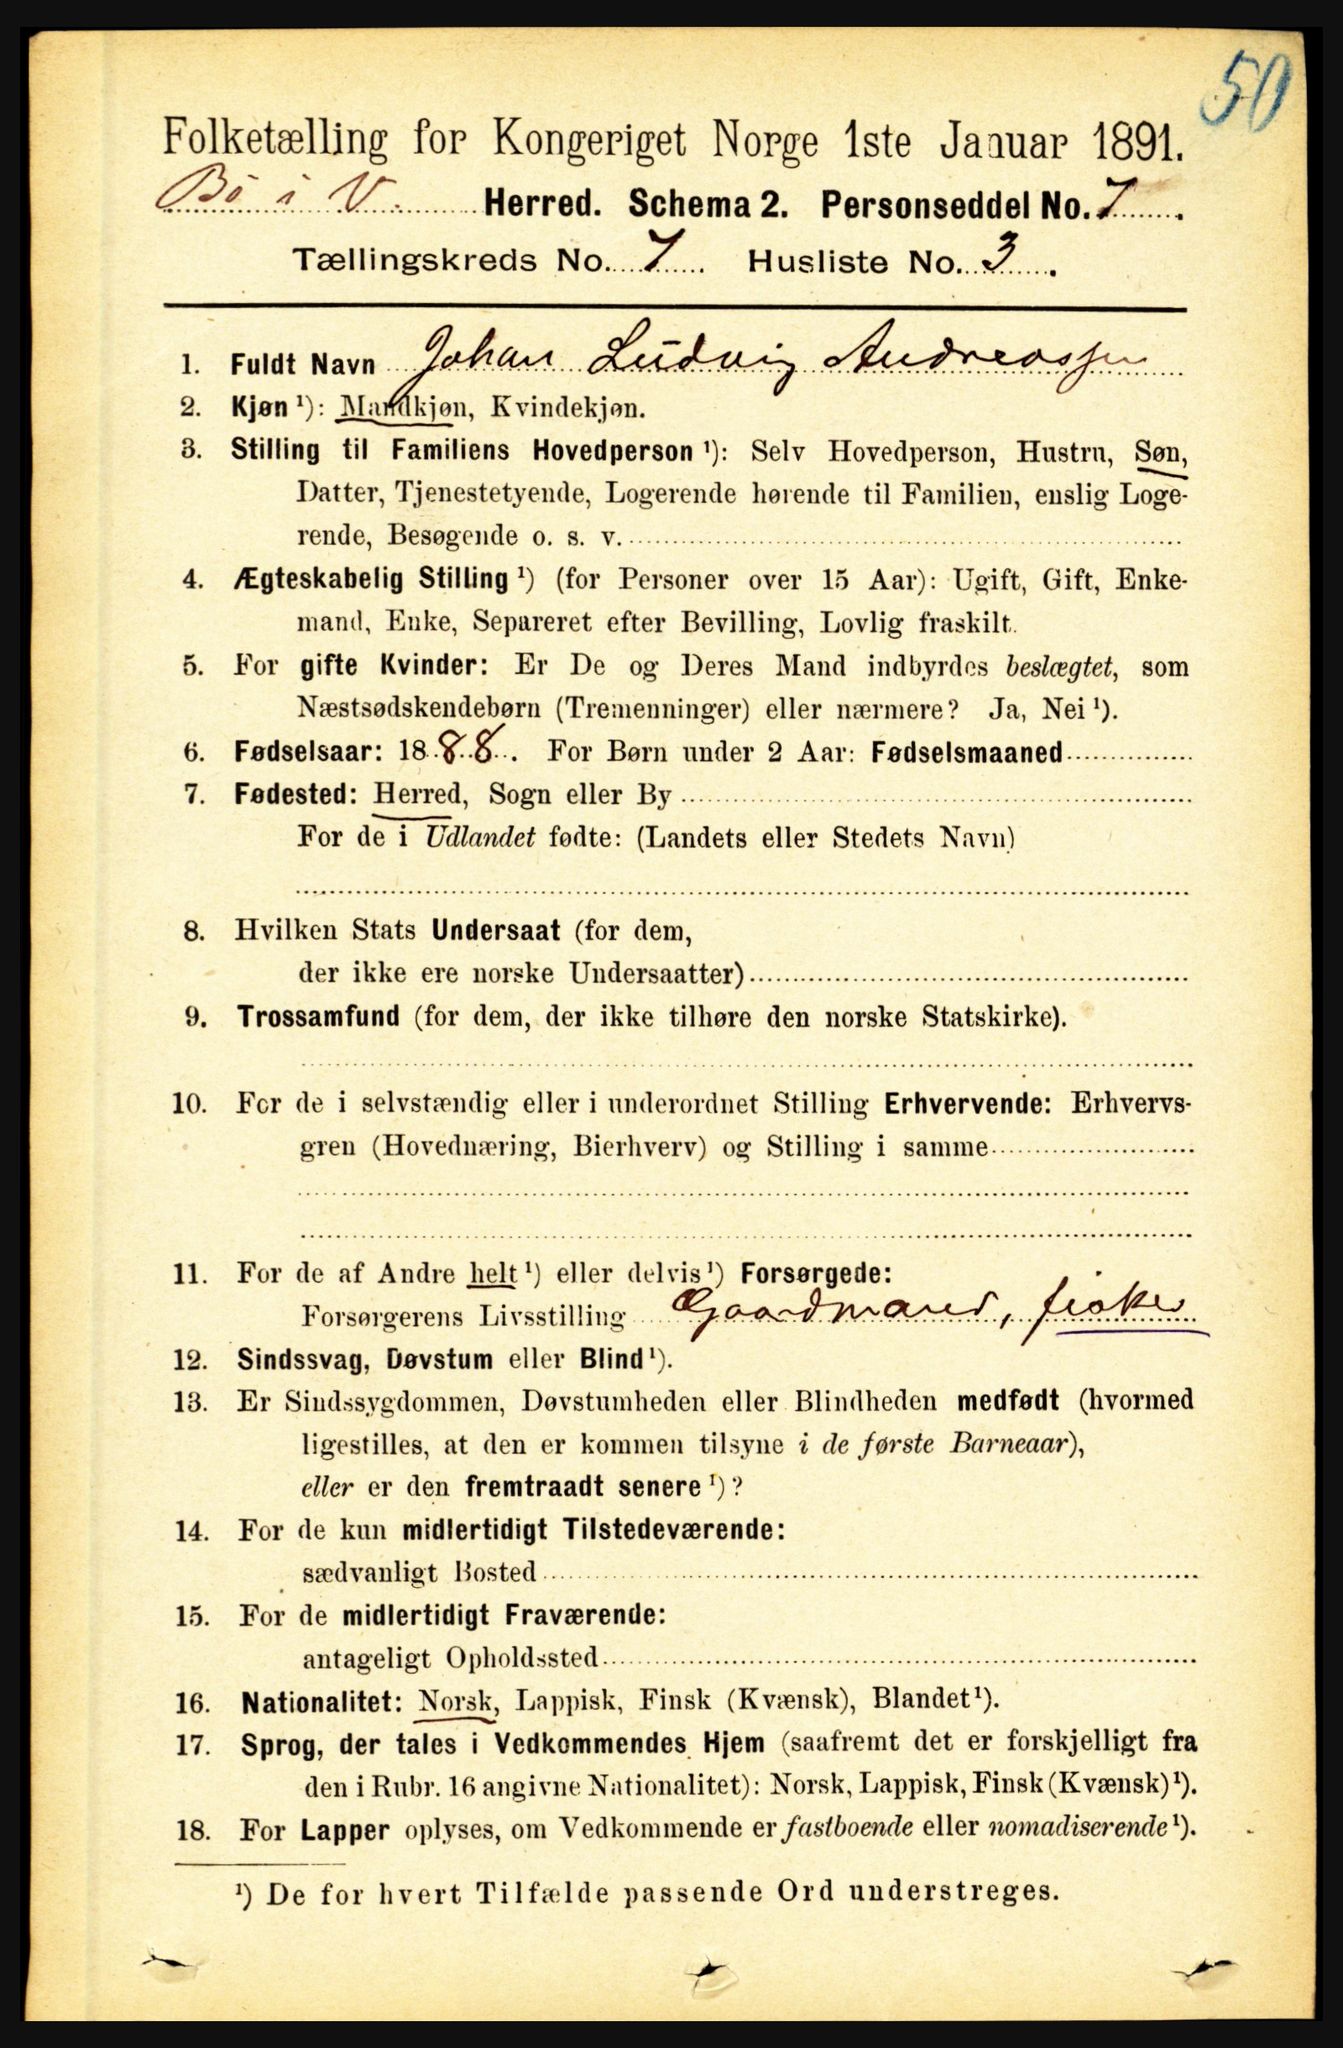 50
Folketælling for Kongeriget Norge 1ste Januar 1891.
Bö i V. Herred. Schema 2. Personseddel No. 7.
Tællingskreds No. 7. Husliste No. 3.
1. Fuldt Navn Johan Ludvig Andreassen
2. Kjøn ¹): Mandkjøn, Kvindekjøn.
3. Stilling til Familiens Hovedperson ¹): Selv Hovedperson, Hustru, Søn,
Datter, Tjenestetyende, Logerende hørende til Familien, enslig Loge-
rende, Besøgende o. s. v.
4. Ægteskabelig Stilling ¹) (for Personer over 15 Aar): Ugift, Gift, Enke-
mand, Enke, Separeret efter Bevilling, Lovlig fraskilt.
5. For gifte Kvinder: Er De og Deres Mand indbyrdes beslægtet, som
Næstsødskendebørn (Tremenninger) eller nærmere? Ja, Nei ¹).
6. Fødselsaar: 1888. For Børn under 2 Aar: Fødselsmaaned
7. Fødested: Herred, Sogn eller By
For de i Udlandet fødte: (Landets eller Stedets Navn)
8. Hvilken Stats Undersaat (for dem,
der ikke ere norske Undersaatter)
9. Trossamfund (for dem, der ikke tilhøre den norske Statskirke).
10. For de i selvstændig eller i underordnet Stilling Erhvervende: Erhvervs-
gren (Hovednæring, Bierhverv) og Stilling i samme
11. For de af Andre helt ¹) eller delvis ¹) Forsørgede:
Forsørgerens Livsstilling Gaardmand, fisker
12. Sindssvag, Døvstum eller Blind ¹).
13. Er Sindssygdommen, Døvstumheden eller Blindheden medfødt (hvormed
ligestilles, at den er kommen tilsyne i de første Barneaar),
eller er den fremtraadt senere ¹)?
14. For de kun midlertidigt Tilstedeværende:
sædvanligt Bosted
15. For de midlertidigt Fraværende:
antageligt Opholdssted
16. Nationalitet: Norsk, Lappisk, Finsk (Kvænsk), Blandet ¹).
17. Sprog, der tales i Vedkommendes Hjem (saafremt det er forskjelligt fra
den i Rubr. 16 angivne Nationalitet): Norsk, Lappisk, Finsk (Kvænsk) ¹).
18. For Lapper oplyses, om Vedkommende er fastboende eller nomadiserende ¹).
¹) De for hvert Tilfælde passende Ord understreges.